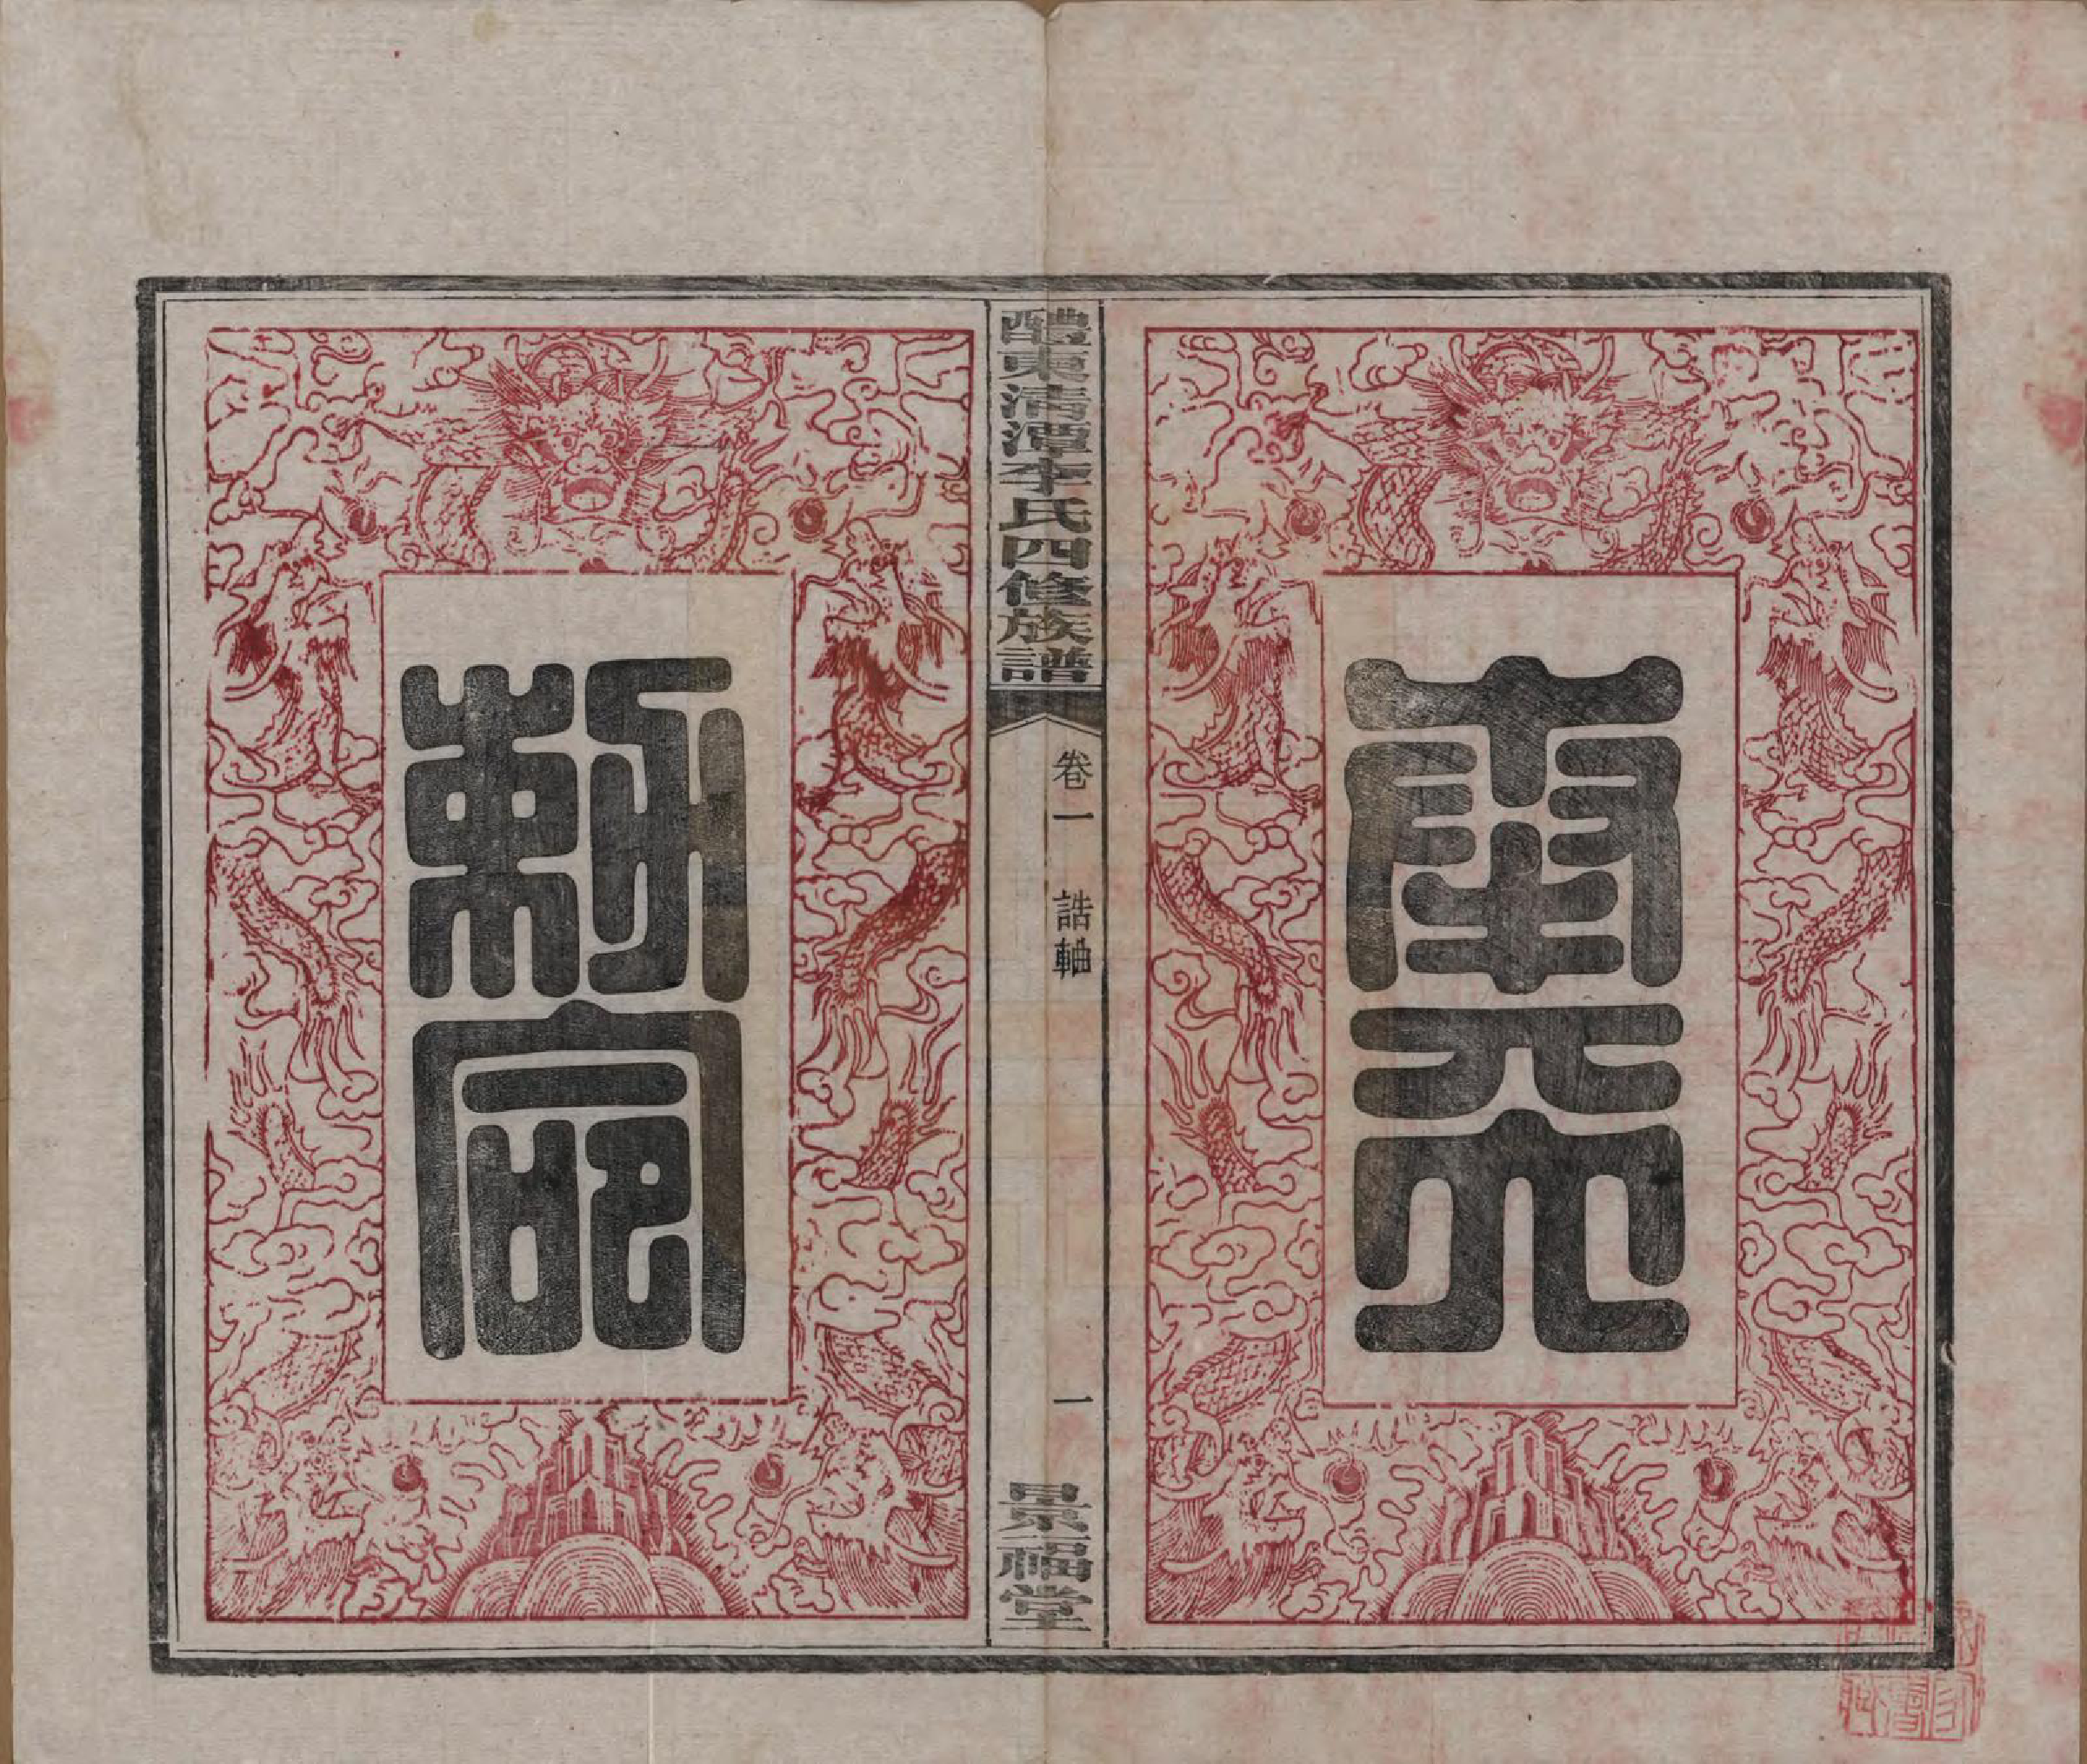 奉天
醴東清潭李氏四修族譜
卷一 誥軸
一
景福堂
勅命